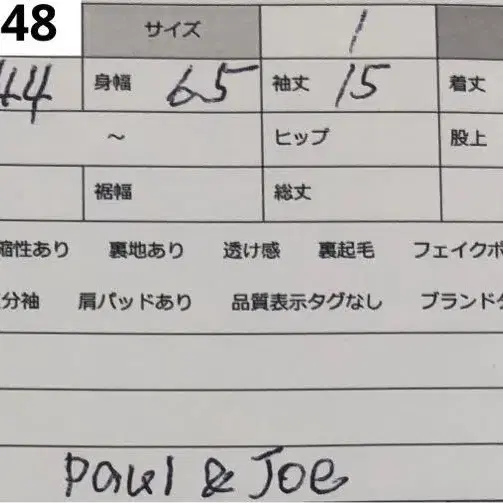 48 サイズ 1
44 身幅 65 袖丈 15 着丈
～ ヒップ 股上
裾幅 総丈
縮性あり 裏地あり 透け感 裏起毛 フェイクポ
分袖 肩パッドあり 品質表示タグなし ブランドタ
Paul & Joe